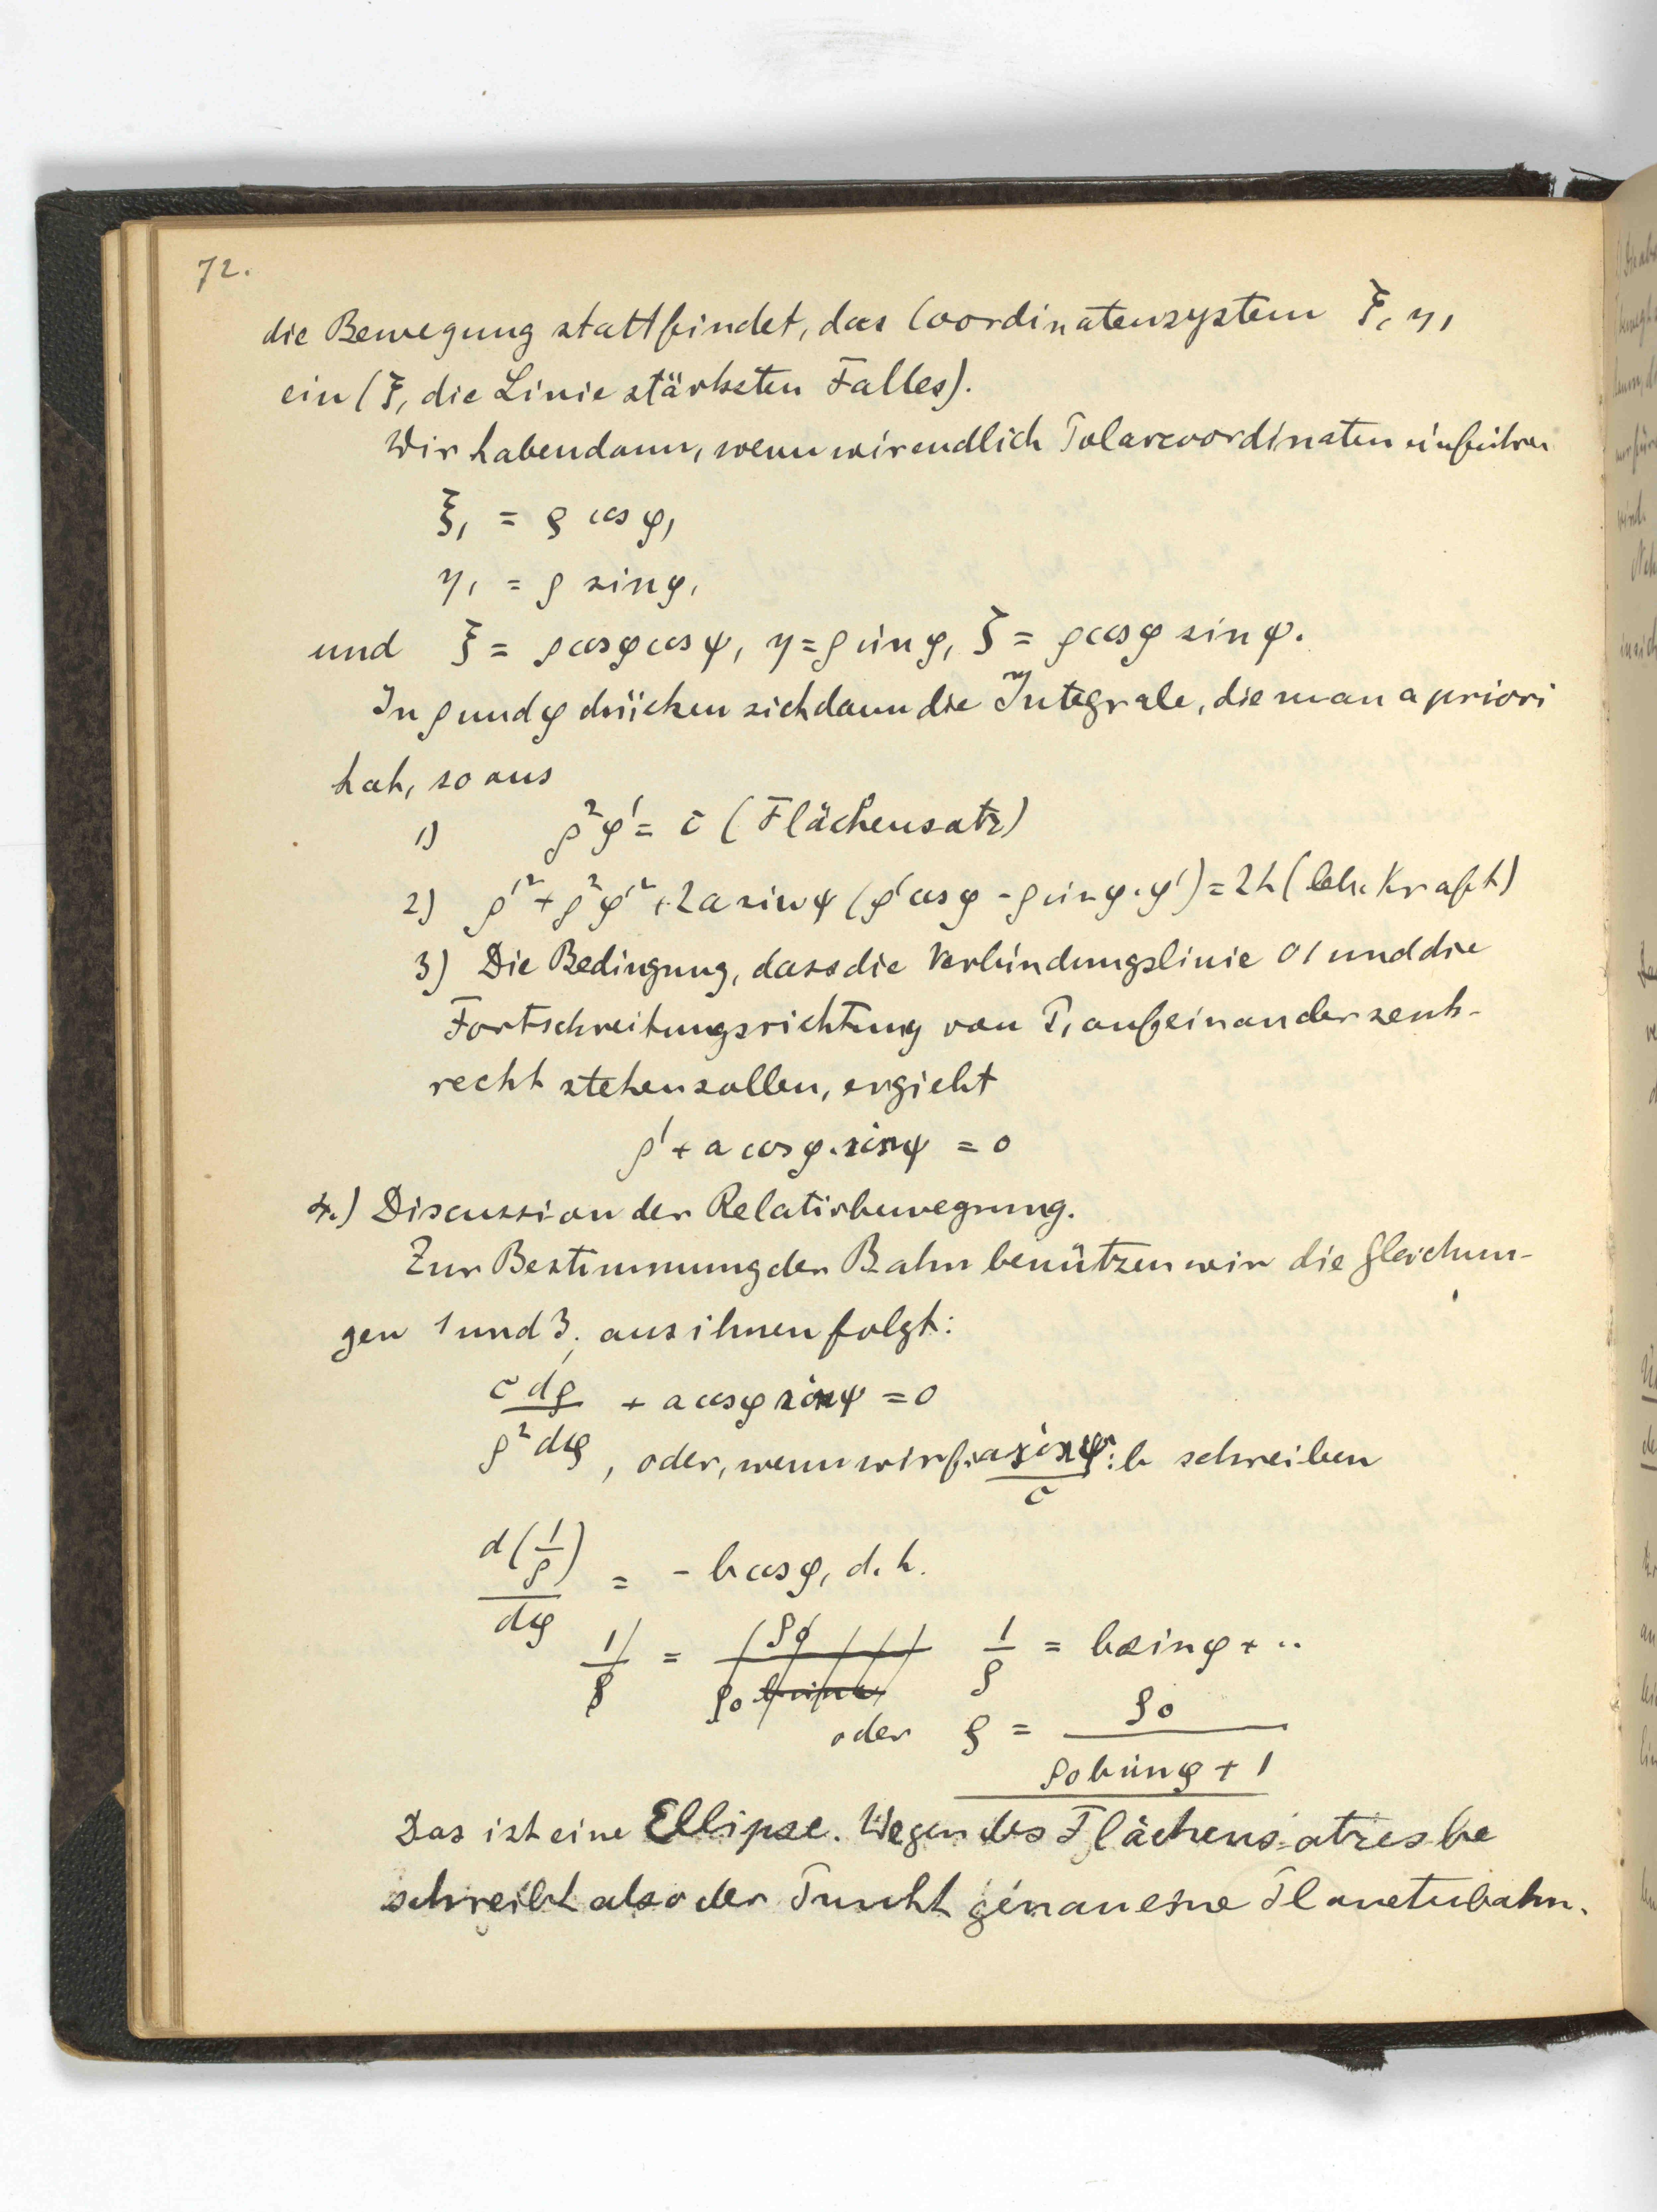 72.
die Bewegung stattfindet, das Coordinatensystem ξ, η,
ein (ξ, die Linie stärksten Falles).
Wir haben dann, wenn wir endlich Polarcoordinaten einführen
ξ, = ρ cos φ,
η, = ρ sin φ,
und ξ = ρ cos φ cos ψ, η = ρ sin φ, ζ = ρ cos φ sin ψ.
In ρ und φ drücken sich dann die Integrale, die man a priori
hat, so aus
1) ρ²φ' = c (Flächensatz)
2) ρ'² + ρ²φ'² + 2a sin ψ (ρ' cos φ - ρ sin φ · φ') = 2h (leb. Kraft)
3) Die Bedingung, dass die Verbindungslinie 01 und die
Fortschreitungsrichtung von P, aufeinander senk-
recht stehen sollen, ergiebt
ρ' + a cos φ . sin ψ = 0
4.) Discussion der Relativbewegung.
Zur Bestimmung der Bahn benützen wir die Gleichun-
gen 1 und 3; aus ihnen folgt:
c dρ / ρ² dφ + a cos φ sin ψ = 0
, oder, wenn wir f. a sin ψ / c : b schreiben
d(1/ρ) / dφ = - b cos φ, d. h.
1/ρ = ρ0 / ρ0 1/ρ = b sin φ + ..
oder ρ = ρ0 / ρ0 b sin φ + 1
Das ist eine Ellipse. Wegen des Flächensatzes be
schreibt also der Punkt genau eine Planetenbahn.